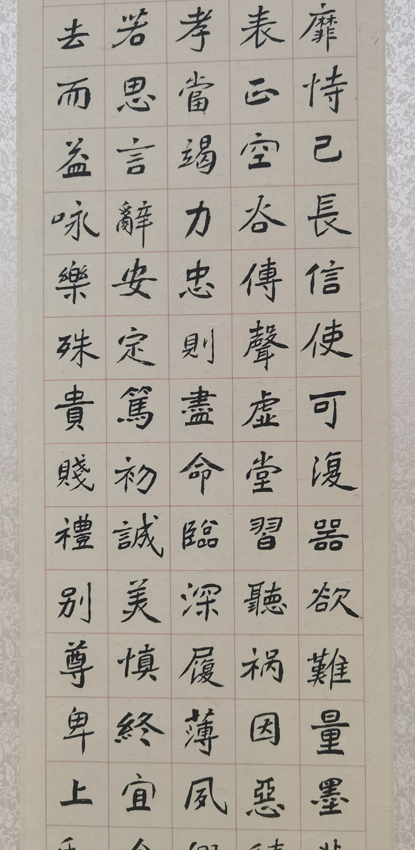 靡恃己長信使可復器欲難量墨
表正空谷傳聲虛堂習聽禍因惡
孝當竭力忠則盡命臨深履薄夙
若思言辭安定篤初誠美慎終宜
去而益咏樂殊貴賤禮別尊卑上